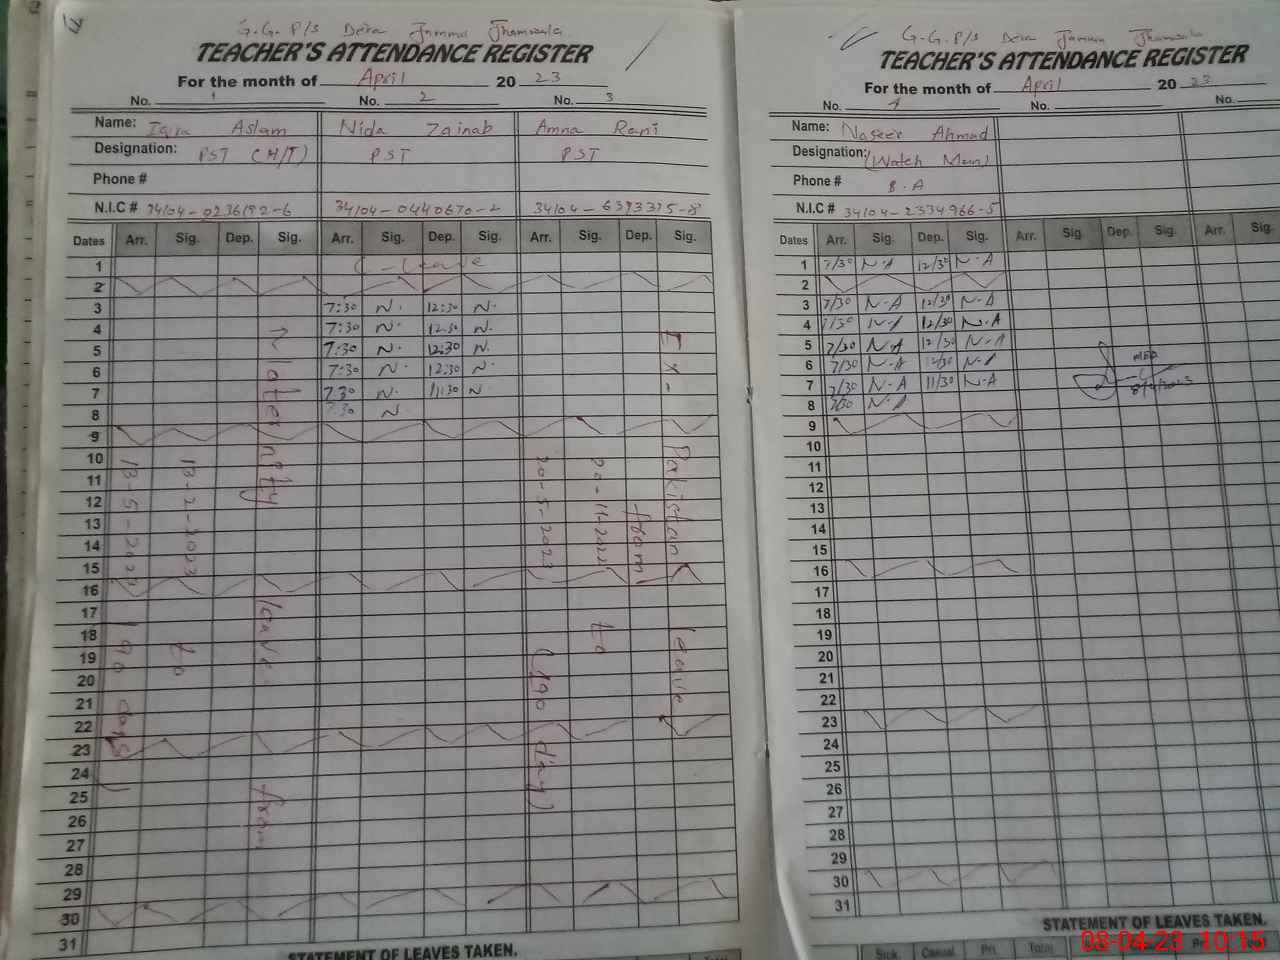 G.G. P/S Dera Jamma Jhamwala
TEACHER'S ATTENDANCE REGISTER
For the month of April 20 23
No. 1 No. 2 No. 3
Name: Iqra Aslam Nida Zainab Amna Rani
Designation: PST (H/T) PST PST
Phone #
N.I.C # 34104-0236192-6 34104-0440670-2 34104-6393375-8
Dates Arr. Sig. Dep. Sig. Arr. Sig. Dep. Sig. Arr. Sig. Dep. Sig.
1 C-Leave
2
3 7:30 N. 12:30 N.
4 7:30 N. 12:30 N.
5 7:30 N. 12:30 N.
6 7:30 N. 12:30 N.
7 7:30 N. 11:30 N
8 7:30 N
9
10
11
12
13
14
15
16
17
18
19
20
21
22
23
24
25
26
27
28
29
30
31
leave from
13-2-2023 to
13-5-2023 (90 days)
Ex-Pakistan leave
from
20-11-2022 to
20-5-2023 (190 day)
STATEMENT OF LEAVES TAKEN.
G.G. P/S Dera Jamma Jhamwala
TEACHER'S ATTENDANCE REGISTER
For the month of April 20 23
No. 4 No. No.
Name: Naseer Ahmad
Designation: (Watch Man)
Phone # B.A
N.I.C # 34104-2334966-5
Dates Arr. Sig. Dep. Sig. Arr. Sig. Dep. Sig. Arr. Sig.
1 7/30 N.A 12/30 N.A
2
3 7/30 N.A 12/30 N.A
4 7/30 N.A 12/30 N.A
5 7/30 N.A 12/30 N.A
6 7/30 N.A 12/30 N.A
7 7/30 N.A 11/30 N.A
8 7/30 N.A
9
10
11
12
13
14
15
16
17
18
19
20
21
22
23
24
25
26
27
28
29
30
31
STATEMENT OF LEAVES TAKEN.
Sick. Casual Pri. Total
08-04-23 10:15